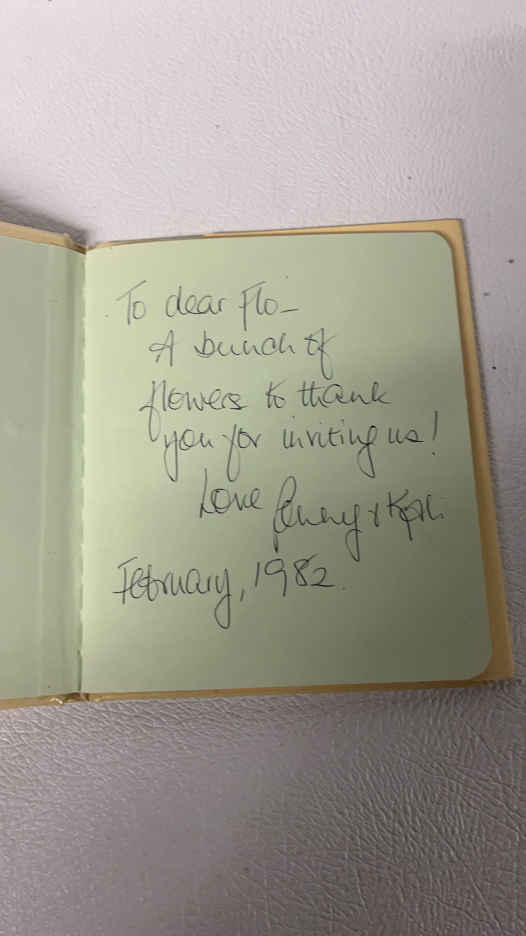 To dear Flo –
A bunch of
flowers to thank
you for inviting us!
Love Penny &
February, 1982.